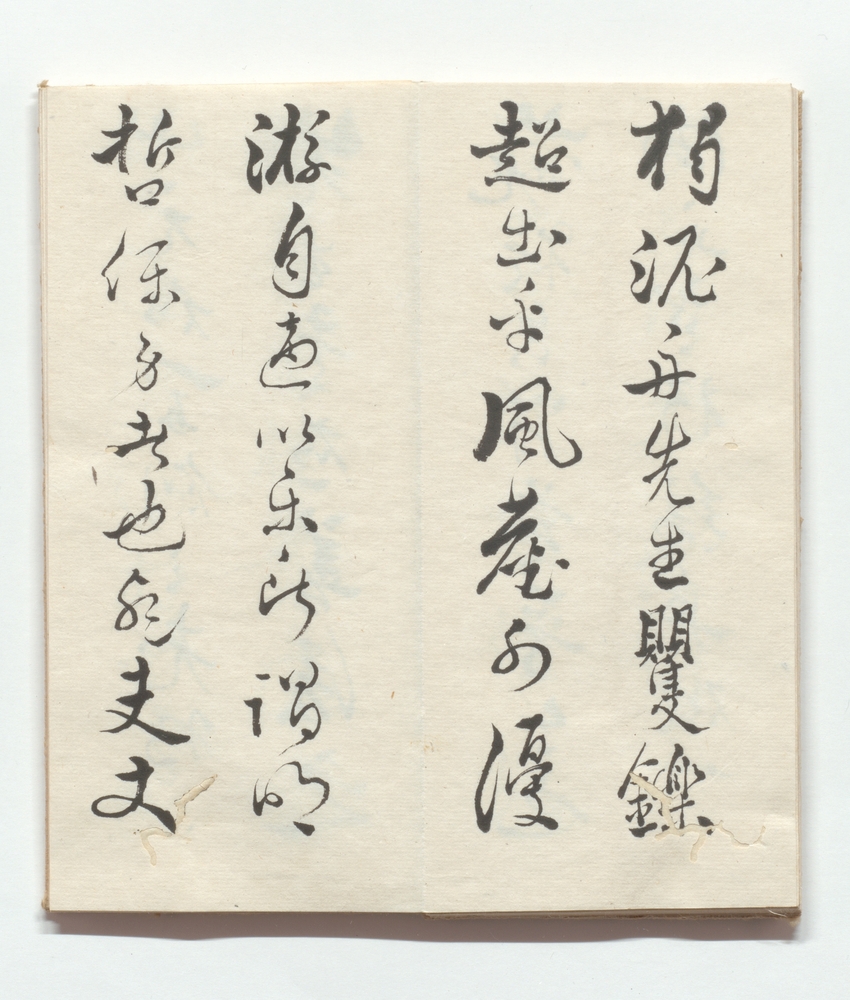 楊泥舟先生矍鑠
超出乎風塵外漫
游自適以樂所謂明
哲保身者也能丈